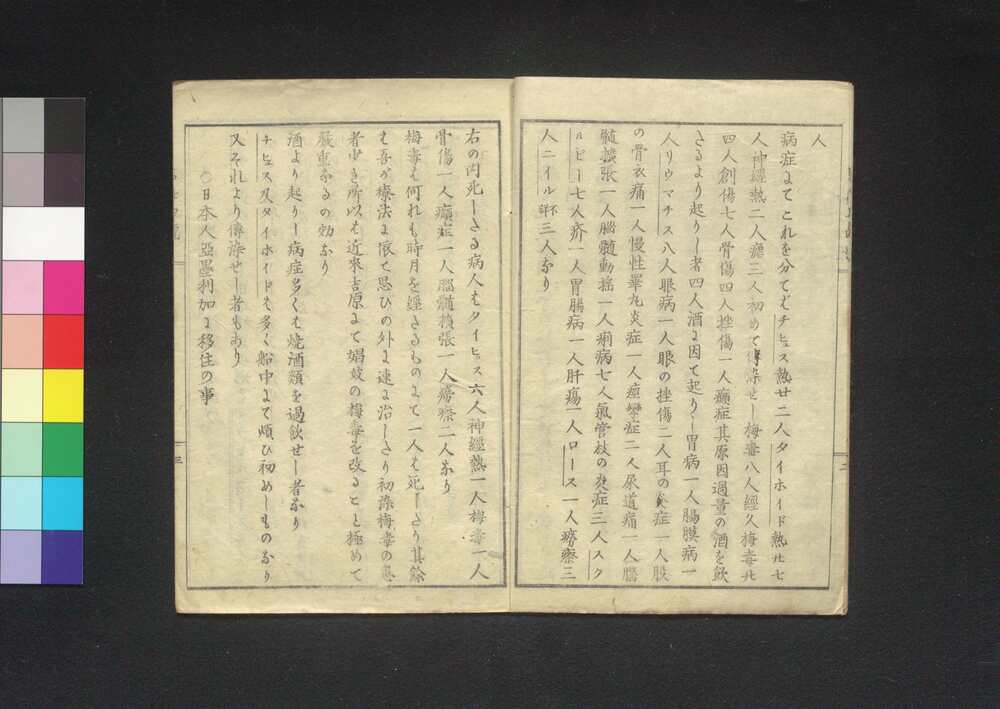 人
病症にてこれを分てばチヒュス熱廿二人タイホイド熱廿七
人神經熱二人瘧三人初めて傳染せし梅毒八人經久梅毒廿
四人創傷七人骨傷四人挫傷一人癲症其原因過量の酒を飲
さるより起りし者四人酒に因て起りし胃病一人腸膜病一
人リウマチス八人眼病一人眼の挫傷二人耳の炎症一人股
の骨衣痛一人慢性睾丸炎症一人痙攣症二人尿道痛一人腦
髄擴張一人腦髄動揺一人痢病七人氣管枝の炎症三人スク
ルビー七人疥一人胃腸病一人肝瘍一人ロース一人癆瘵三
人ニイル不詳三人なり
右の内死しさる病人はタイヒュス六人神經熱一人梅毒一人
骨傷一人癲症一人腦髄擴張一人癆瘵二人なり
梅毒は何れも時月を經さるものにて一人は死しさり其餘
は吾が療法に依て思ひの外に速に治しさり初染梅毒の患
者少き所以は近來吉原にて娼妓の梅毒を改ること極めて
嚴重なるの効なり
酒より起りし病症多くは焼酒類を過飲せし者なり
チヒュス及タイホイドは多く船中にて煩ひ初めしものなり
又それより傳染せし者もあり
○日本人亞墨利加に移住の事
三